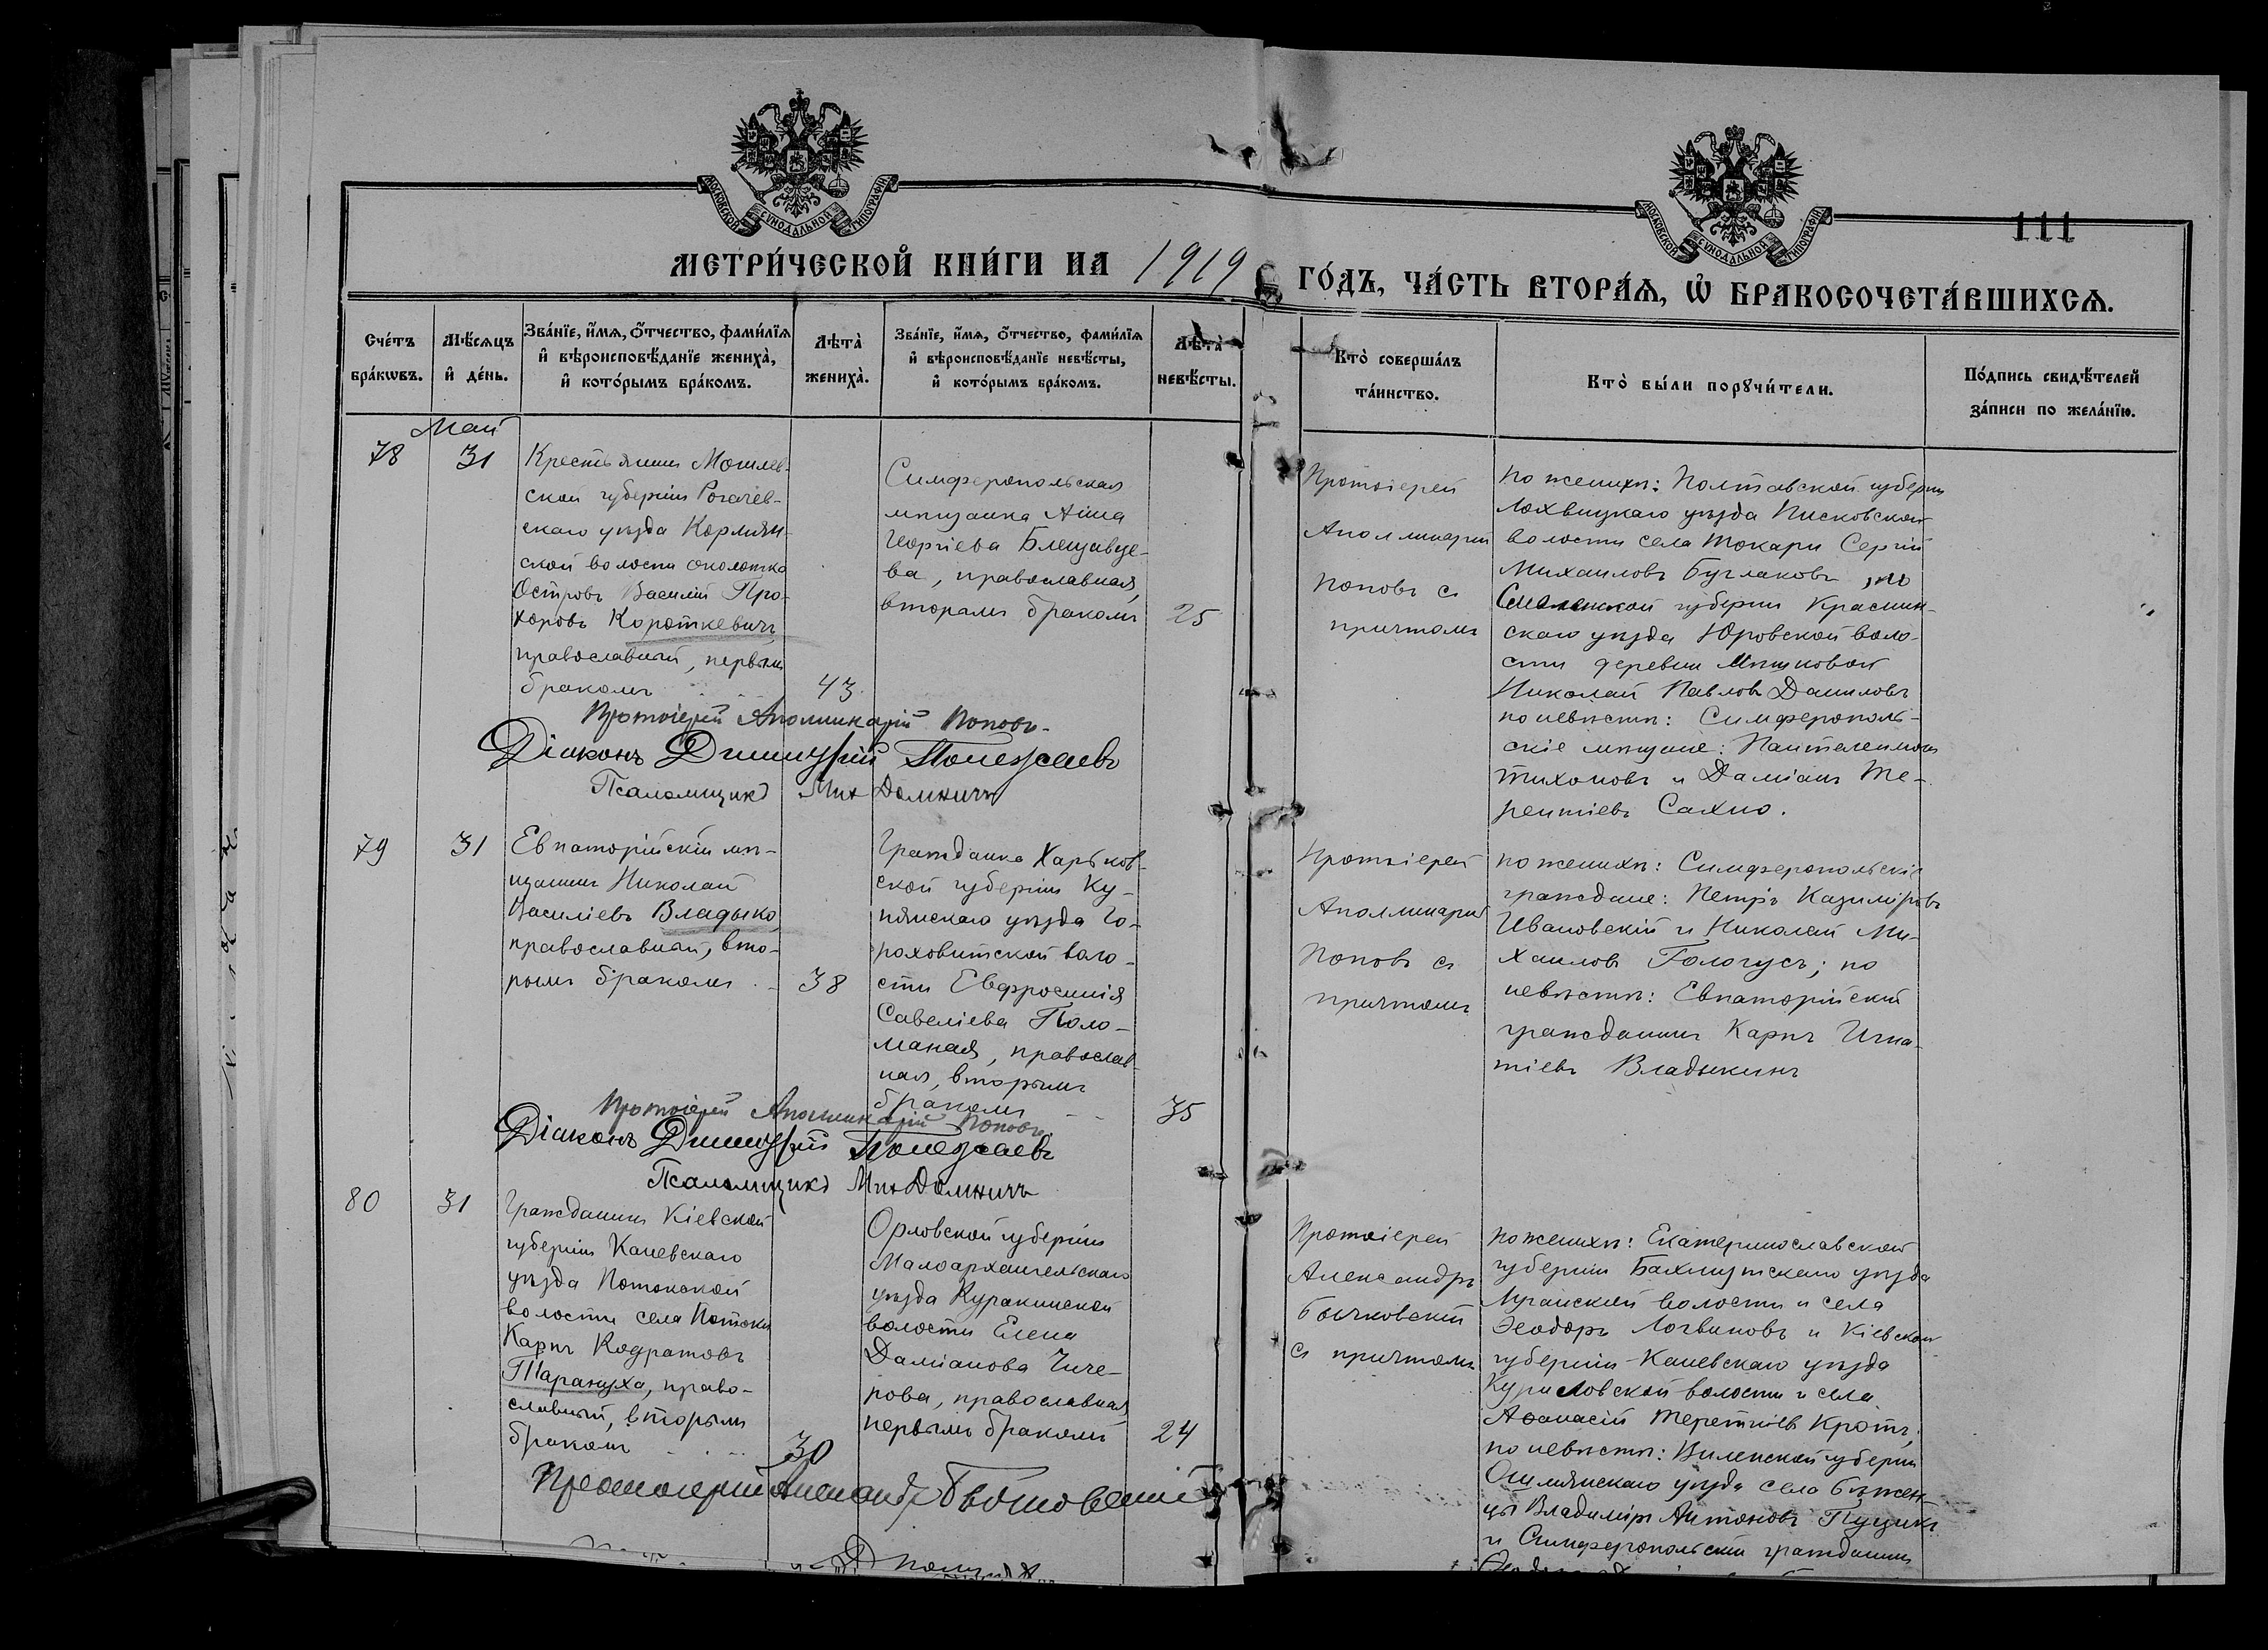 МОСКОВСКОЙ СУНОДАЛЬНОЙ ТИПОГРАФІИ
МОСКОВСКОЙ СУНОДАЛЬНОЙ ТИПОГРАФІИ
111
МЕТРИ́ЧЕСКОЙ КНИ́ГИ НА 1919 ГО́ДЪ, ЧА́СТЬ ВТОРА́Ѧ, Ѿ БРАКОСОЧЕТА́ВШИХСѦ.
Сче́тъ бра́кѡвъ.
Мѣ́сѧцъ и҆ де́нь.
Зва́нїе, и҆́мѧ, ѻ҆́тчество, фами́лїѧ и҆ вѣроисповѣ́данїе жениха̀, и҆ кото́рымъ бра́комъ.
Лѣта̀ жениха̀.
Зва́нїе, и҆́мѧ, ѻ҆́тчество, фами́лїѧ и҆ вѣроисповѣ́данїе невѣ́сты, и҆ кото́рымъ бра́комъ.
Лѣта̀ невѣ́сты.
Кто̀ соверша́лъ та́инство.
Кто̀ бы́ли порꙋчи́тели.
По́дпись свидѣ́телей за́писи по жела́нїю.
Май
78
31
Крестьянинъ Могилев-
ской губерніи Рогачев-
скаго уѣзда Кормян-
ской волости околотка
Островъ Василій Про-
хоровъ Короткевичъ,
православный, первымъ
бракомъ
43
Симферопольская
мѣщанка Анна
Георгіева Блещавце-
ва, православная,
вторымъ бракомъ
25
Протоіерей
Аполлинарій
Поповъ съ
причтомъ
по женихѣ: Полтавской губерніи
Лохвицкаго уѣзда Писковской
волости села Токари Сергій
Михаиловъ Бурлаковъ, и
Смоленской губерніи Краснин-
скаго уѣзда Юровской воло-
сти деревни Мишковой
Николай Павловъ Даниловъ
по невѣстѣ: Симферополь-
скіе мѣщане: Пантелеимонъ
Тихоновъ и Даміанъ Те-
рентіевъ Сахно.
Протоіерей Аполлинарій Поповъ.
Діаконъ Димитрій Полежаевъ
Псаломщикъ Мих Домничъ
79
31
Евпаторійскій мѣ-
щанинъ Николай
Василіевъ Владыко,
православный, вто-
рымъ бракомъ
38
Гражданка Харьков-
ской губерніи Ку-
пянскаго уѣзда Го-
роховитской воло-
сти Евфросинія
Савеліева Поло-
маная, православ-
ная, вторымъ
бракомъ
35
Протоіерей
Аполлинарій
Поповъ съ
причтомъ
по женихѣ: Симферопольскіе
граждане: Петръ Казиміровъ
Ивановскій и Николай Ми-
хаиловъ Гологусъ; по
невѣстѣ: Евпаторійскій
гражданинъ Карпъ Игна-
тіевъ Владыкинъ
Протоіерей Аполлинарій Поповъ.
Діаконъ Димитрій Полежаевъ
Псаломщикъ Мих Домничъ
80
31
Гражданинъ Кіевской
губерніи Каневскаго
уѣзда Потокской
волости села Потоки
Карпъ Кодратовъ
Тарануха, право-
славный, вторымъ
бракомъ
30
Орловской губерніи
Малоархангельскаго
уѣзда Куракинской
волости Елена
Даміанова Чиче-
рова, православная
первымъ бракомъ
24
Протоіерей
Александръ
Бычковскій
съ причтомъ
по женихѣ: Екатеринославской
губерніи Бахмутскаго уѣзда
Луганской волости и села
Ѳеодоръ Логвиновъ и Кіевской
губерніи Каневскаго уѣзда
Куриловской волости и села
Аѳанасій Терентіевъ Кротъ;
по невѣстѣ: Виленской губерніи
Ошмянскаго уѣзда села Бѣжен-
цы Владиміръ Антоновъ Пущикъ
и Симферопольскій гражданинъ
Протоіерей Александръ